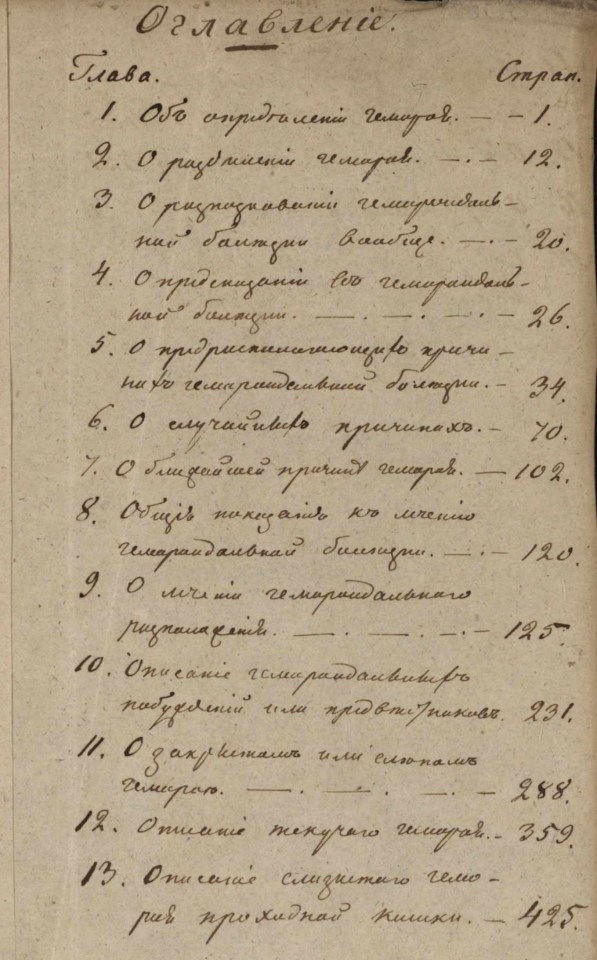 Оглавленіе.
Глава. Стран.
1. Объ опредѣленіи гемороя. — — 1.
2. О раздѣленіи гемороя. — . — 12.
3. О разпознованіи гемороидаль-
ной болѣзни вообще. — . — 20.
4. О предсказаніи въ гемороидаль-
ной болѣзни. — . — . — . — 26.
5. О предрасполагающихъ причи-
нахъ гемороидальной болѣзни. — 34.
6. О случайныхъ причинахъ. — 70.
7. О ближайшей причинѣ гемороя. — 102.
8. Общія показанія къ лѣченію
гемороидальной болѣзни. — . — 120.
9. О лѣченіи гемороидальнаго
разположенія. — . — . — . — 125.
10. Описаніе гемороидальныхъ
побужденій или предвѣстниковъ. 231.
11. О закрытомъ или слѣпомъ
гемороѣ. — . — . — . — 288.
12. Описаніе текучаго гемороя. — 359.
13. Описаніе слизистаго гемо-
роя проходной кишки. — 425.